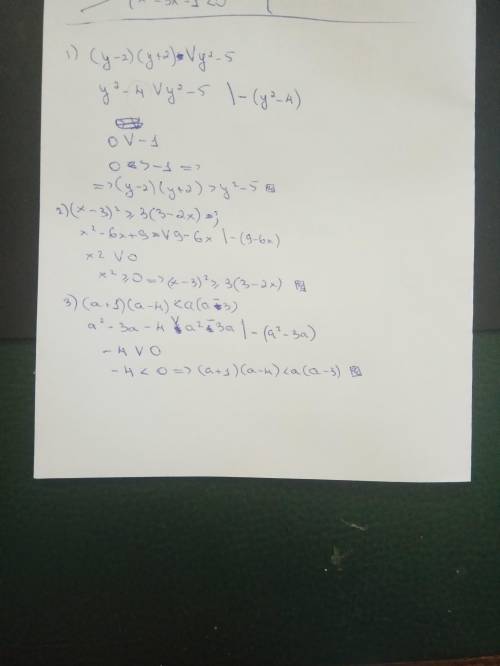 (x²-3x-1<0
1) (y-2)(y+2) V y²-5
y²-4 V y²-5 | -(y²-4)
0 V -1
0 > -1 =>
=> (y-2)(y+2) > y²-5
2) (x-3)² ≥ 3(3-2x)
x²-6x+9 V 9-6x | -(9-6x)
x² V 0
x² ≥ 0 => (x-3)² ≥ 3(3-2x)
3) (a+1)(a-4) < a(a-3)
a²-3a-4 V a²-3a | -(a²-3a)
-4 V 0
-4 < 0 => (a+1)(a-4) < a(a-3)